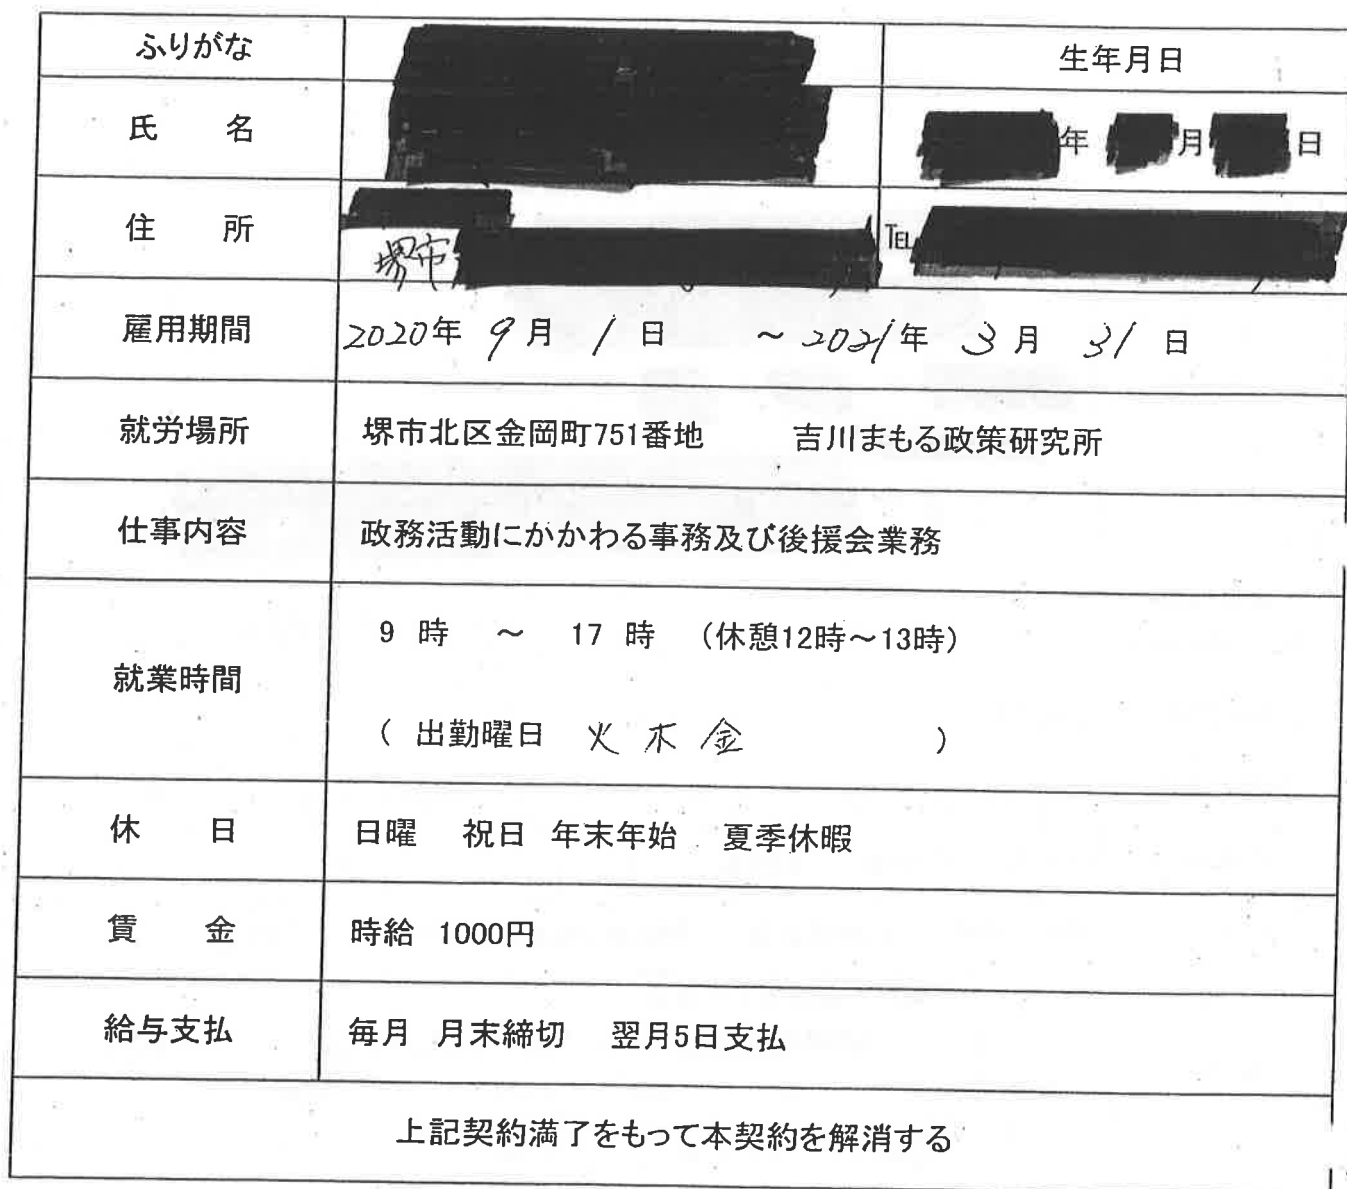 ふりがな 生年月日
氏 名 年 月 日
住 所 堺市 TEL
雇用期間 2020年 9月 1日 ～ 2021年 3月 31日
就労場所 堺市北区金岡町751番地 吉川まもる政策研究所
仕事内容 政務活動にかかわる事務及び後援会業務
就業時間 9 時 ～ 17 時 (休憩12時～13時)
( 出勤曜日 火 木 金 )
休 日 日曜 祝日 年末年始 夏季休暇
賃 金 時給 1000円
給与支払 毎月 月末締切 翌月5日支払
上記契約満了をもって本契約を解消する